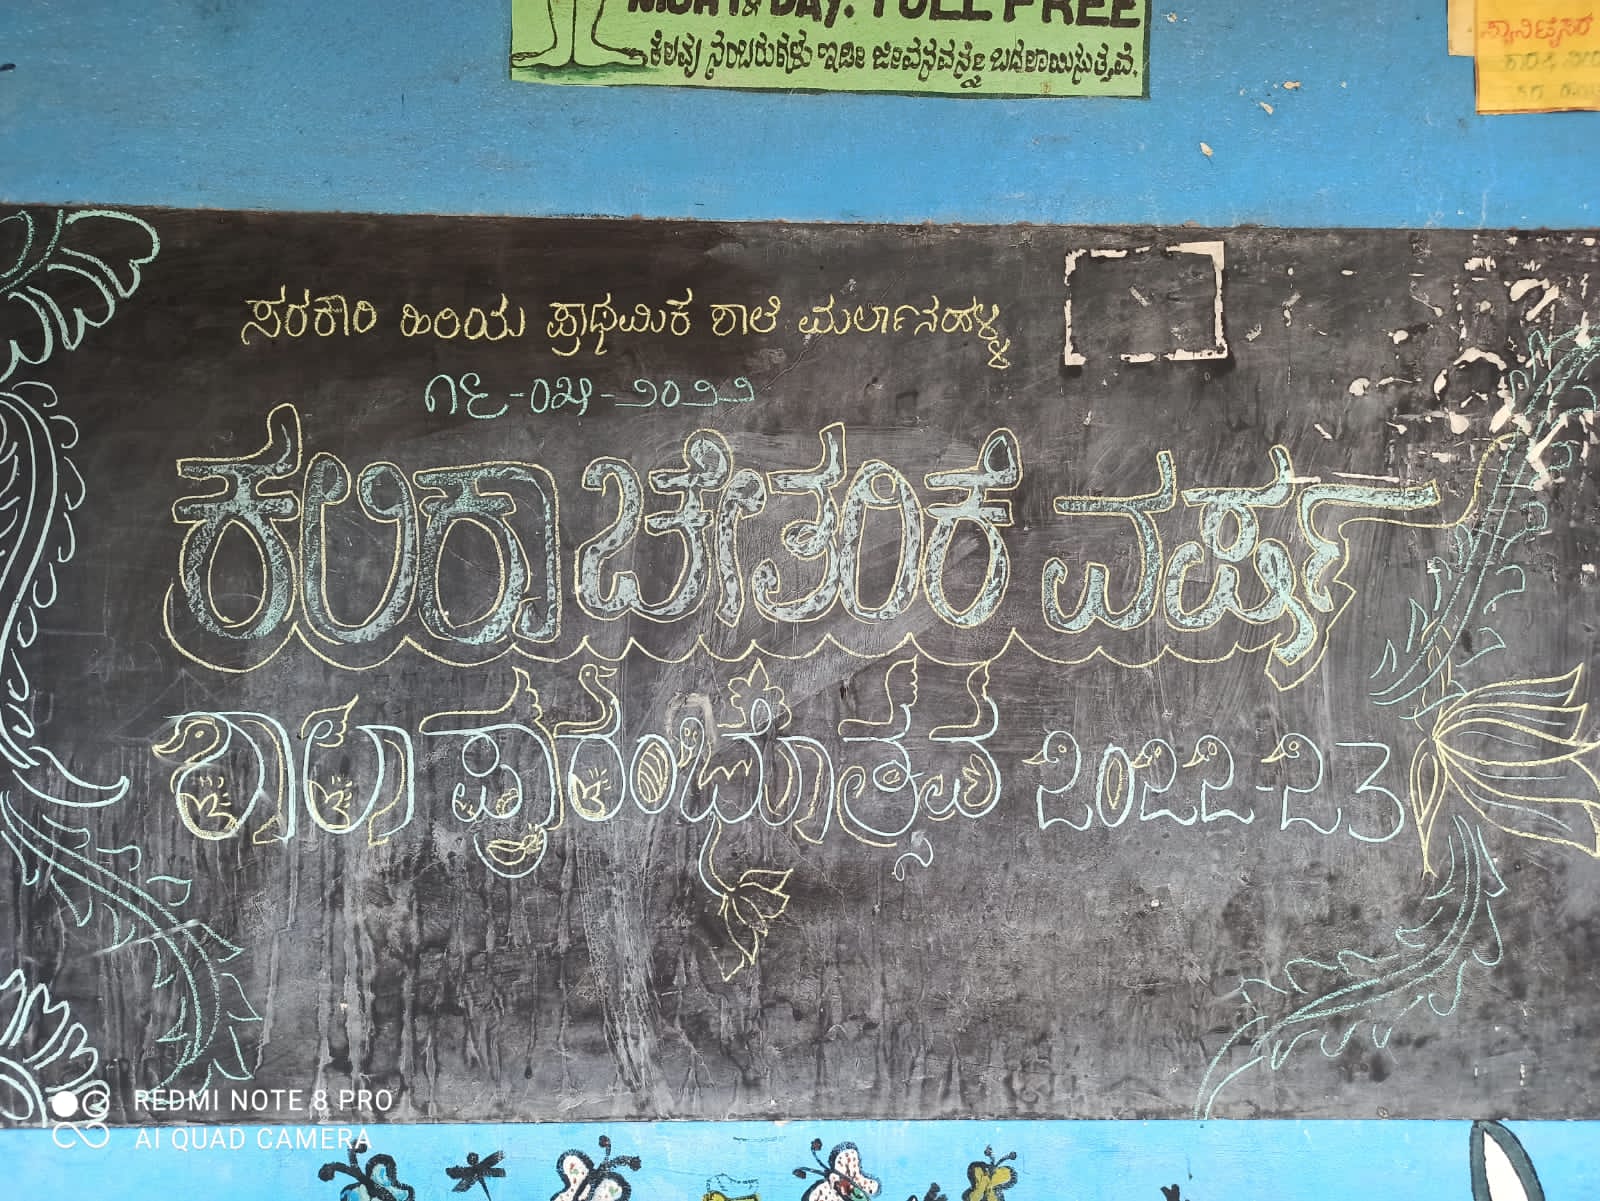 NIGHT & DAY. TOLL FREE
ಕೆಲವು ನಂಬರುಗಳು ಇಡೀ ಜೀವನವನ್ನೇ ಬದಲಾಯಿಸುತ್ತವೆ.
ಸ್ಯಾನಿಟೈಸರ್
ಸರಕಾರಿ ಹಿರಿಯ ಪ್ರಾಥಮಿಕ ಶಾಲೆ ಮರ್ಲಾನಹಳ್ಳಿ
೧೬-೦೫-೨೦೨೨
ಕಲಿಕಾ ಚೇತರಿಕೆ ವರ್ಷ
ಶಾಲಾ ಪ್ರಾರಂಭೋತ್ಸವ ೨೦೨೨-೨೩
REDMI NOTE 8 PRO
AI QUAD CAMERA